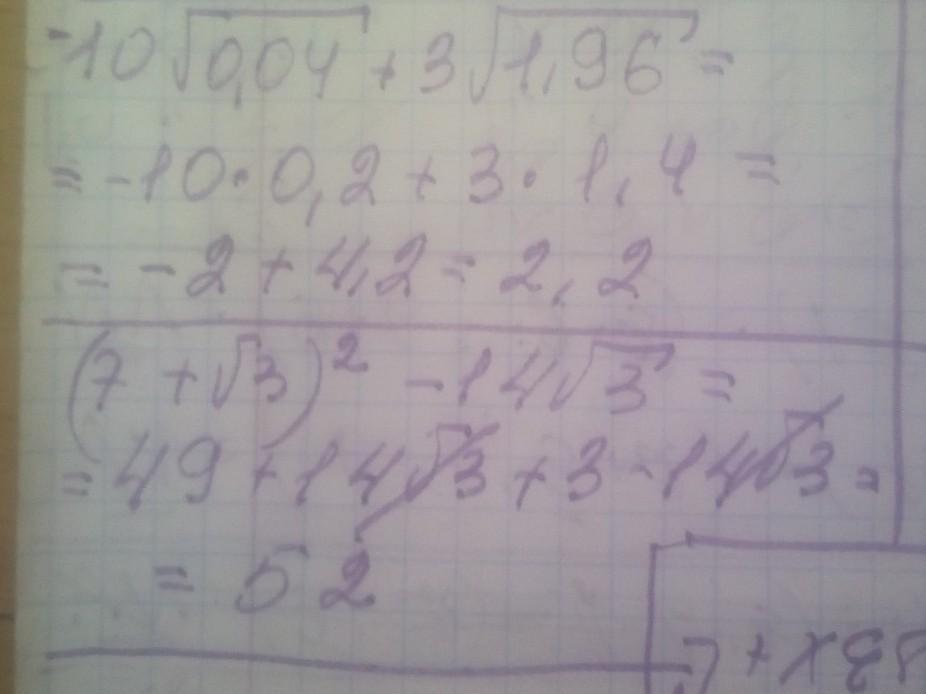 -10√0,04 + 3√1,96 =
= -10·0,2 + 3·1,4 =
= -2 + 4,2 = 2,2
(7 + √3)² - 14√3 =
= 49 + 14√3 + 3 - 14√3 =
= 52